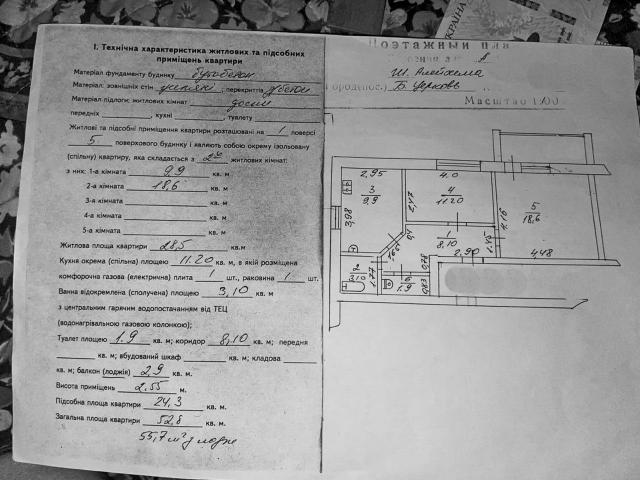 І. Технічна характеристика житлових та підсобних
приміщень квартири
Матеріал фундаменту будинку бутобетон
Матеріал: зовнішніх стін , перекриттів з/бетон
Матеріал підлоги: житлових кімнат дощ.
передніх , кухні , туалету
Житлові та підсобні приміщення квартири розташовані на 1 поверсі
5 поверхового будинку і являють собою окрему ізольовану
(спільну) квартиру, яка складається з 2х житлових кімнат:
з них: 1-а кімната 9.9 кв. м
2-а кімната 18,6 кв. м
3-я кімната кв. м
4-а кімната кв. м
5-а кімната кв. м
Житлова площа квартири 28,5 кв.м
Кухня окрема (спільна) площею 11.20 кв. м, в якій розміщена
комфорочна газова (електрична) плита 1 шт., раковина 1 шт.
Ванна відокремлена (сполучена) площею 3,10 кв. м
з центральним гарячим водопостачанням від ТЕЦ
(водонагрівальною газовою колонкою);
Туалет площею 1.9 кв. м; коридор 8,10 кв. м; передня
кв. м; вбудований шкаф кв. м; кладова
кв. м; балкон (лоджія) 2,9 кв. м.
Висота приміщень 2.55 м.
Підсобна площа квартири 24,3 кв. м.
Загальна площа квартири 52,8 кв. м.
55,7 м² з лодж
УКРАЇНА
Поэтажный пла
А
Ш. Алейхема
Б. Церковь
Масштаб 1:100
2,95
4.0
3
9.9
4
11.20
5
18,6
3,98
2,47
4.16
1
8,10
2.90
4,48
2
3,10
1.77
6
1.9
0,83